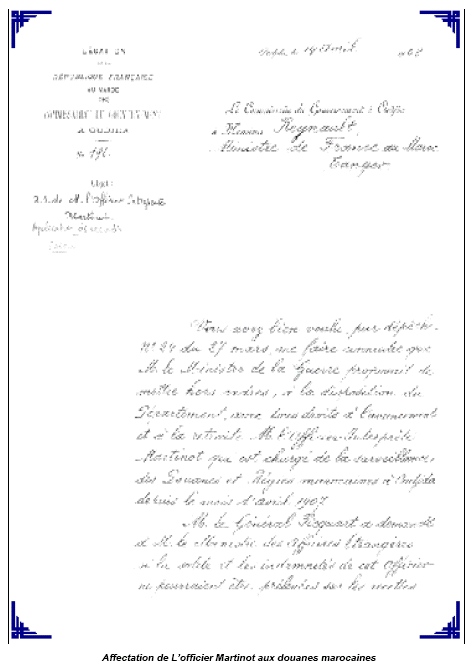 LÉGATION
DE LA
RÉPUBLIQUE FRANÇAISE
AU MAROC
COMMISSARIAT DU GOUVERNEMENT
A OUDJDA
Oudjda, le 14 Avril
Le Commissaire du Gouvernement à Oudjda
à Monsieur Regnault,
Ministre de France au Maroc
Tanger
N°
a.s. de M. l'Officier Interprète
Martinot.
Vous avez bien voulu, par dépêche
N° 24 du 27 mars, me faire connaître que
M. le Ministre de la Guerre proposait de
mettre hors cadres, à la disposition du
Département, avec droits à l'avancement
et à la retraite M. l'Officier Interprète
Martinot qui est chargé de la surveillance
des Douanes et Régies marocaines à Oudjda
depuis le mois d'avril 1907.
M. le Général Picquart a demandé
à M. le Ministre des Affaires Etrangères
si la solde et les indemnités de cet Officier
ne pourraient être prélevées sur les recettes
Affectation de L'officier Martinot aux douanes marocaines